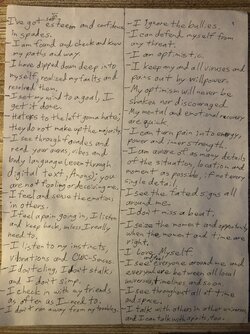 I've got self esteem and confidence
in spades.
I am found and check and know
my paths and way.
I have dipped down deep into
myself, realized my faults and
resolved them.
I put my mind to a goal, I
get it done.
Haters to the left gonna hate;
they do not make up the majority.
I see through façades and
read your moves, vibes and
body language (even through
digital text, &
you
are not fooling or deceiving me.
I feel and sense the emotions
in others.
I feel a pain going in, I listen
and keep back, unless I really
need
I listen to my instincts,
vibrations and
I don't cling, I don't stalk
and I don't simp.
I check in with my friends
as often as I need to.
I don't run away from my troubles.
- I Ignore the bullies.
- I can defend myself from
any threat.
- I am optimistic.
- I keep my and all viruses and
pains out by willpower.
- My optimism will never be
shaken nor discouraged.
- My mental and emotional recovery
are quick.
- I can turn pain into energy,
power and inner strength.
- I am aware of as many details
of the situation, location and
moment as possible, if not every
single detail.
- I see the fated signs all
around me.
- I don't miss a beat.
- I seize the moment and opportunity
when the moment and time are
right.
- I love myself.
- I see everyone around me, and
everywhere between all local
universal melees and so on.
- I see throughout all of time
and space.
- I talk with others in other universes
and I can talk with